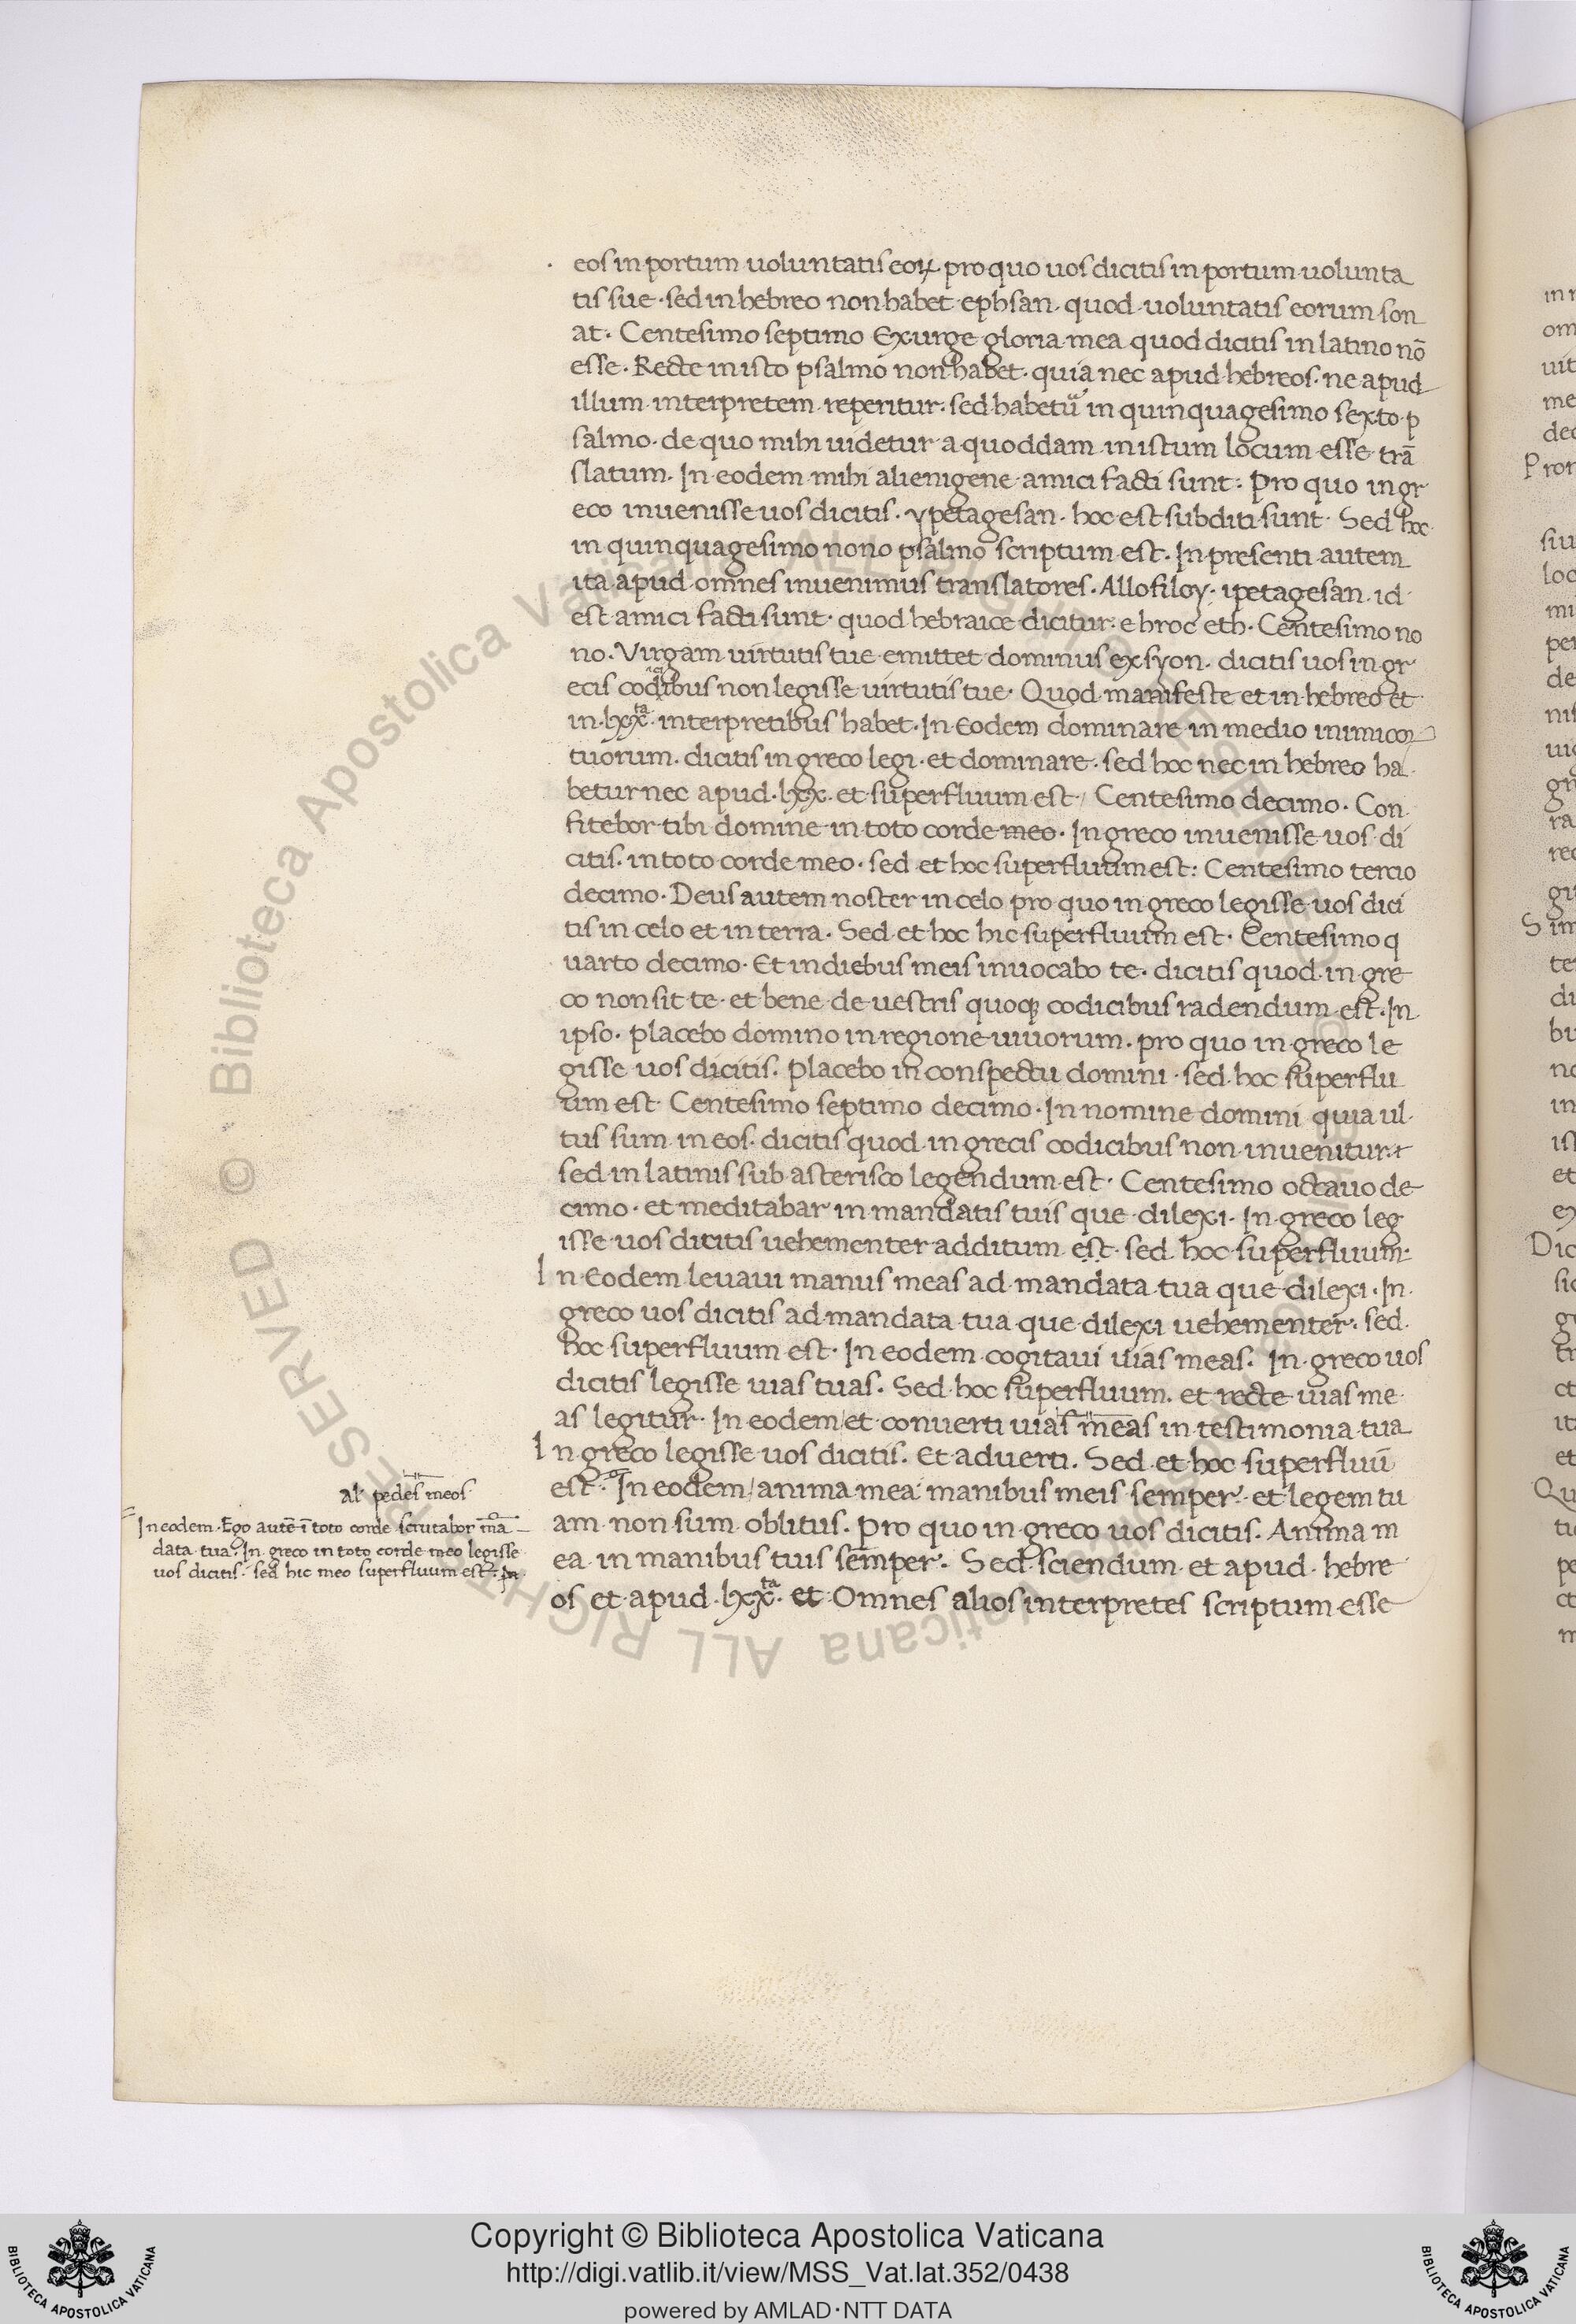 eos in portum uoluntatis eoꝝ pro quo uos dicitis in portum uolunta
tis sue · sed in hebreo non habet ephsan · quod uoluntatis eorum son
at · Centesimo septimo Exurge gloria mea quod dicitis in latino nō
esse · Recte in isto psalmo non habet · quia nec apud hebreos · ne apud
illum interpretem reperitur · sed habetū in quinquagesimo sexto p
salmo · de quo mihi uidetur a quoddam in istum locum esse trā
slatum · In eodem mihi alienigene amici facti sunt : Pro quo in gr
eco inuenisse uos dicitis · ypetagesan · hoc est subditi sunt · Sed hoc
in quinquagesimo nono psalmo scriptum est · In presenti autem
ita apud omnes inuenimus translatores · Allofiloy · ipetagesan · id
est amici facti sunt · quod hebraice dicitur · e broc eth · Centesimo no
no · Virgam uirtutis tue emittet dominus ex syon · dicitis uos in gr
ecis codicibus non legisse uirtutis tue · Quod manifeste et in hebreo et
in · lxxᵗᵃ · interpretibus habet · In Eodem dominare in medio inimicoꝝ
tuorum · dicitis in greco legi · et dominare · sed hoc nec in hebreo ha
betur nec apud · lxx · et superfluum est / Centesimo decimo · Con
fitebor tibi domine in toto corde meo · In greco inuenisse uos di
citis · in toto corde meo · sed et hoc superfluum est : Centesimo tercio
decimo · Deus autem noster in celo pro quo in greco legisse uos dici
tis in celo et in terra · Sed et hoc hic superfluum est · Centesimo q
uarto decimo · Et in diebus meis inuocabo te · dicitis quod in gre
co non sit te · et bene de uestris quoqꝫ codicibus radendum est · In
ipso · placebo domino in regione uiuorum · pro quo in greco le
gisse uos dicitis · placebo in conspectu domini · sed hoc superflu
um est · Centesimo septimo decimo · In nomine domini quia ul
tus sum in eos · dicitis quod in grecis codicibus non inuenitur ·
sed in latinis sub asterisco legendum est · Centesimo octauo de
cimo · et meditabar in mandatis tuis que dilexi · In greco leg
isse uos dicitis uehementer additum est · sed hoc superfluum ·
In Eodem leuaui manus meas ad mandata tua que dilexi · In
greco uos dicitis ad mandata tua que dilexi uehementer · sed
hoc superfluum est · In eodem cogitaui uias meas · In greco uos
dicitis legisse uias tuas · Sed hoc superfluum · et recte uias me
as legitur · In eodem / et conuerti uias meas in testimonia tua
In greco legisse uos dicitis · Et aduerti · Sed et hoc superfluū
est · In eodem / anima mea manibus meis semper · et legem tu
am non sum oblitus · Pro quo in greco uos dicitis · Anima m
ea in manibus tuis semper · Sed sciendum et apud hebre
os et apud · lxxᵗᵃ · et Omnes alios interpretes scriptum esse
al' pedes meos
In eodem · Ego autē ī toto corde scrutabor mā
data tua · In greco in toto corde meo legisse
uos dicitis · sed hic meo superfluum est · In
Copyright © Biblioteca Apostolica Vaticana
http://digi.vatlib.it/view/MSS_Vat.lat.352/0438
powered by AMLAD·NTT DATA
BIBLIOTECA APOSTOLICA VATICANA
BIBLIOTECA APOSTOLICA VATICANA